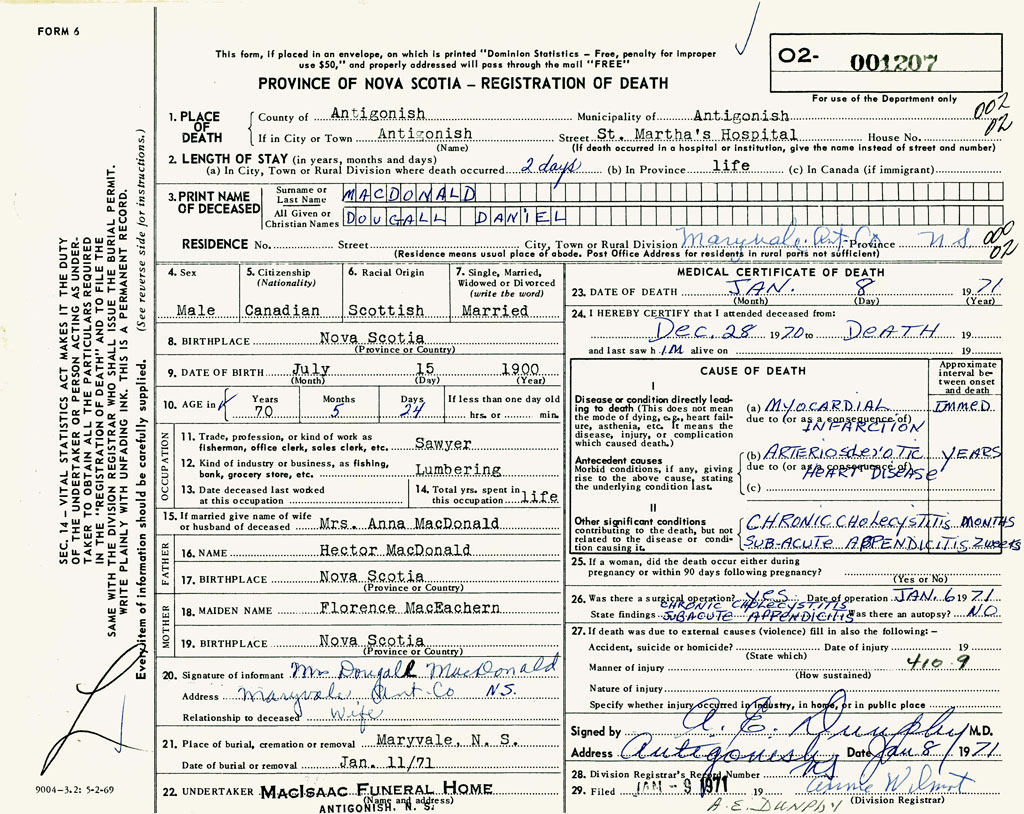 FORM 6
This form, if placed in an envelope, on which is printed "Dominion Statistics – Free, penalty for improper
use $50," and properly addressed will pass through the mail "FREE"
PROVINCE OF NOVA SCOTIA – REGISTRATION OF DEATH
O2- 001207
For use of the Department only
002
02
1. PLACE OF DEATH
County of Antigonish Municipality of Antigonish
If in City or Town Antigonish Street St. Martha's Hospital House No.
(Name) (If death occurred in a hospital or institution, give the name instead of street and number)
2. LENGTH OF STAY (in years, months and days)
(a) In City, Town or Rural Division where death occurred 2 days (b) In Province life (c) In Canada (if immigrant)
3. PRINT NAME OF DECEASED
Surname or Last Name MACDONALD
All Given or Christian Names DOUGALL DANIEL
RESIDENCE No. Street City, Town or Rural Division Maryvale Ant. Co Province N S
000
02
(Residence means usual place of abode. Post Office Address for residents in rural parts not sufficient)
4. Sex
Male
5. Citizenship (Nationality)
Canadian
6. Racial Origin
Scottish
7. Single, Married, Widowed or Divorced (write the word)
Married
8. BIRTHPLACE Nova Scotia
(Province or Country)
9. DATE OF BIRTH July 15 1900
(Month) (Day) (Year)
10. AGE in Years 70 Months 5 Days 24 If less than one day old hrs. or min.
OCCUPATION
11. Trade, profession, or kind of work as
fisherman, office clerk, sales clerk, etc. Sawyer
12. Kind of industry or business, as fishing,
bank, grocery store, etc. Lumbering
13. Date deceased last worked
at this occupation
14. Total yrs. spent in
this occupation life
15. If married give name of wife
or husband of deceased Mrs. Anna MacDonald
FATHER
16. NAME Hector MacDonald
17. BIRTHPLACE Nova Scotia
(Province or Country)
MOTHER
18. MAIDEN NAME Florence MacEachern
19. BIRTHPLACE Nova Scotia
(Province or Country)
20. Signature of informant Mrs Dougall MacDonald
Address Maryvale, Ant. Co N.S.
Relationship to deceased Wife
21. Place of burial, cremation or removal Maryvale, N. S.
Date of burial or removal Jan. 11/71
22. UNDERTAKER MACISAAC FUNERAL HOME
(Name and address)
ANTIGONISH, N. S.
MEDICAL CERTIFICATE OF DEATH
23. DATE OF DEATH JAN. 8 1971
(Month) (Day) (Year)
24. I HEREBY CERTIFY that I attended deceased from:
Dec. 28 1970 to DEATH 19
and last saw h IM alive on 19
CAUSE OF DEATH
Approximate interval between onset and death
I
Disease or condition directly leading to death (This does not mean the mode of dying, e.g., heart failure, asthenia, etc. It means the disease, injury, or complication which caused death.)
(a) MYOCARDIAL IMMED
due to (or as a consequence of)
INFARCTION
Antecedent causes
Morbid conditions, if any, giving rise to the above cause, stating the underlying condition last.
(b) ARTERIOSCLEROTIC YEARS
due to (or as a consequence of)
HEART DISEASE
(c)
II
Other significant conditions
contributing to the death, but not related to the disease or condition causing it.
CHRONIC CHOLECYSTITIS MONTHS
SUB-ACUTE APPENDICITIS 2 weeks
25. If a woman, did the death occur either during
pregnancy or within 90 days following pregnancy?
(Yes or No)
26. Was there a surgical operation? yes Date of operation JAN. 6 1971
CHRONIC CHOLECYSTITIS
State findings SUBACUTE APPENDICITIS Was there an autopsy? NO
27. If death was due to external causes (violence) fill in also the following: –
Accident, suicide or homicide? Date of injury 19
(State which)
410.9
Manner of injury
(How sustained)
Nature of injury
Specify whether injury occurred in industry, in home, or in public place
Signed by A. E. Dunphy M.D.
Address Antigonish NS Date Jan 8 1971
28. Division Registrar's Record Number
29. Filed JAN - 9 1971 19 Wilmot
(Division Registrar)
A.E. DUNPHY
SEC. 14 – VITAL STATISTICS ACT MAKES IT THE DUTY
OF THE UNDERTAKER OR PERSON ACTING AS UNDER-
TAKER TO OBTAIN ALL THE PARTICULARS REQUIRED
IN THE "REGISTRATION OF DEATH" AND TO FILE THE
SAME WITH THE DIVISION REGISTRAR WHO SHALL ISSUE THE BURIAL PERMIT.
WRITE PLAINLY WITH UNFADING INK. THIS IS A PERMANENT RECORD.
Every item of information should be carefully supplied. (See reverse side for instructions.)
9004-3.2: 5-2-69